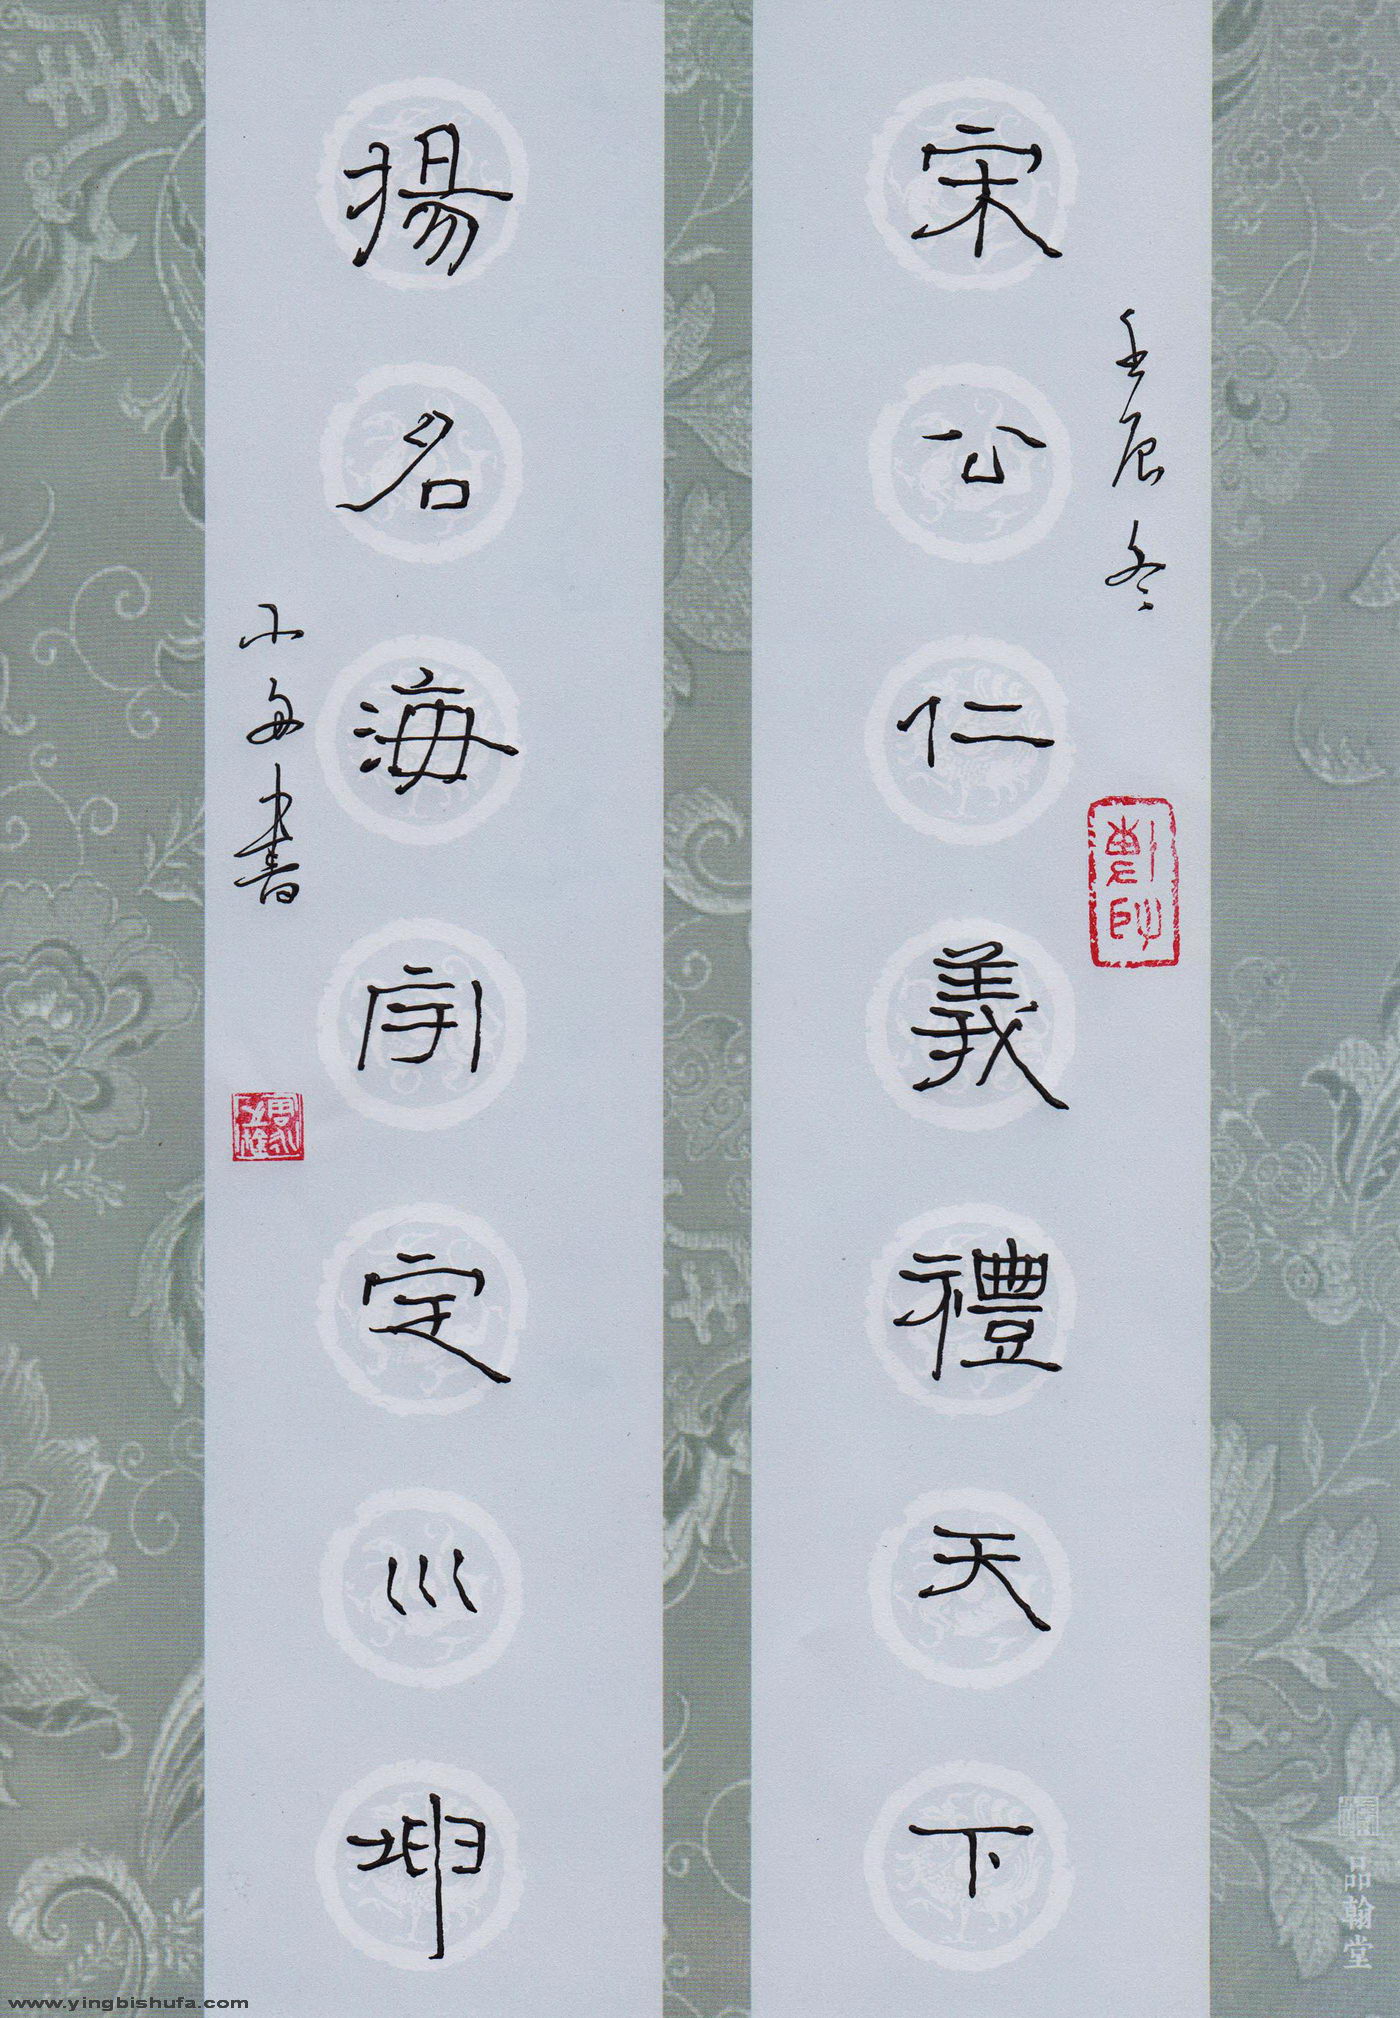 宋公仁義禮天下
壬辰冬
揚名海宇定巛坤
小舟書
品翰堂
www.yingbishufa.com